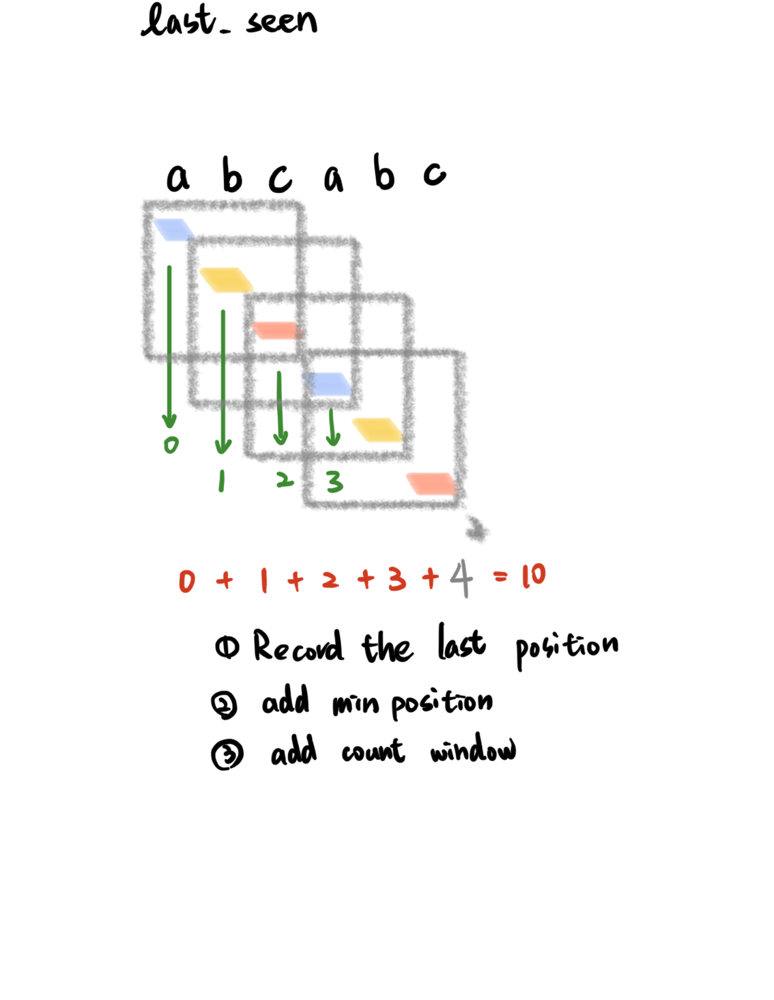 last_seen
a b c a b c
0
1 2 3
0 + 1 + 2 + 3 + 4 = 10
① Record the last position
② add min position
③ add count window